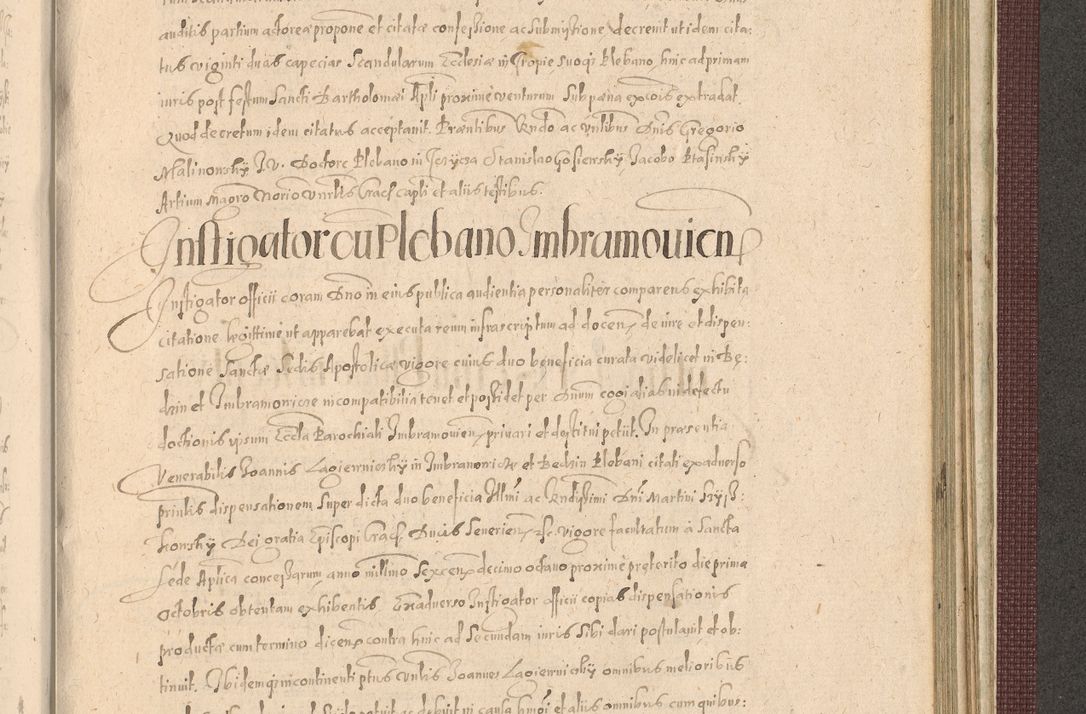 auditis partium actorea propone et citatæ confessione ac submissione decrevit ut idem cita:
tus viginti duas capecias Scandularum Ecclesiæ in Gropie, suoqz Plebano, hinc ad primam
iuris post festum Sancti Bartholomæi Apli proxime venturum sub pæna excois extradat.
Quod decretum idem citatus acceptavit. Præntibus Rndo ac Vnlibus Dnis Gregorio
Malinonsky J.V. Doctore Plebano in Jerzycza Stanislao Gosiewsky Jacobo Ptasinsky
Artium Magro Norio Vnrlis Cracf capli et aliis testibus.
Instigator cu Plebano Imbramovicn
Instigator officii coram Dno in eius publica audientia personaliter comparens exhibita
citatione legittime ut apparebat executa reum infrascriptum ad docenz de iure et dispen:
satione Sanctæ Sedis Apostolicæ vigore cuius duo beneficia curata videlicet in Bę:
dzin et Imbramovicæ incompatibilia tenet et possidet per Dnum cogi alias in defectu
doctionis ipsum Eccla Parochiali Imbramovienz privari et destitui petiit. In præsentia
Venerabilis Joannis Lagiewniczky in Imbramovicæ et Bedzin Plebani citati ex adverso
prinlis dispensationom super dicta duo beneficia Illmi ac Rndissimi Dni Martini Szysz:
kowsky Dei gratia Episcopi Cracf. Ducis Severienz etc. vigore facultatum à Sancta
Sede Aplica concessarum anno millmo Sexcenz decimo octavo proxime preterito die prima
Octobris obtentam exhibentis. Exadverso Instigator officii copias dispensationis
productæ cum termino dicenz contra hinc ad Secundam iuris Sibi dari postulavit et ob:
tinuit. Ibidemqz in continenti ptus Vnlis Joannes Lagiewnicky omnibus melioribus